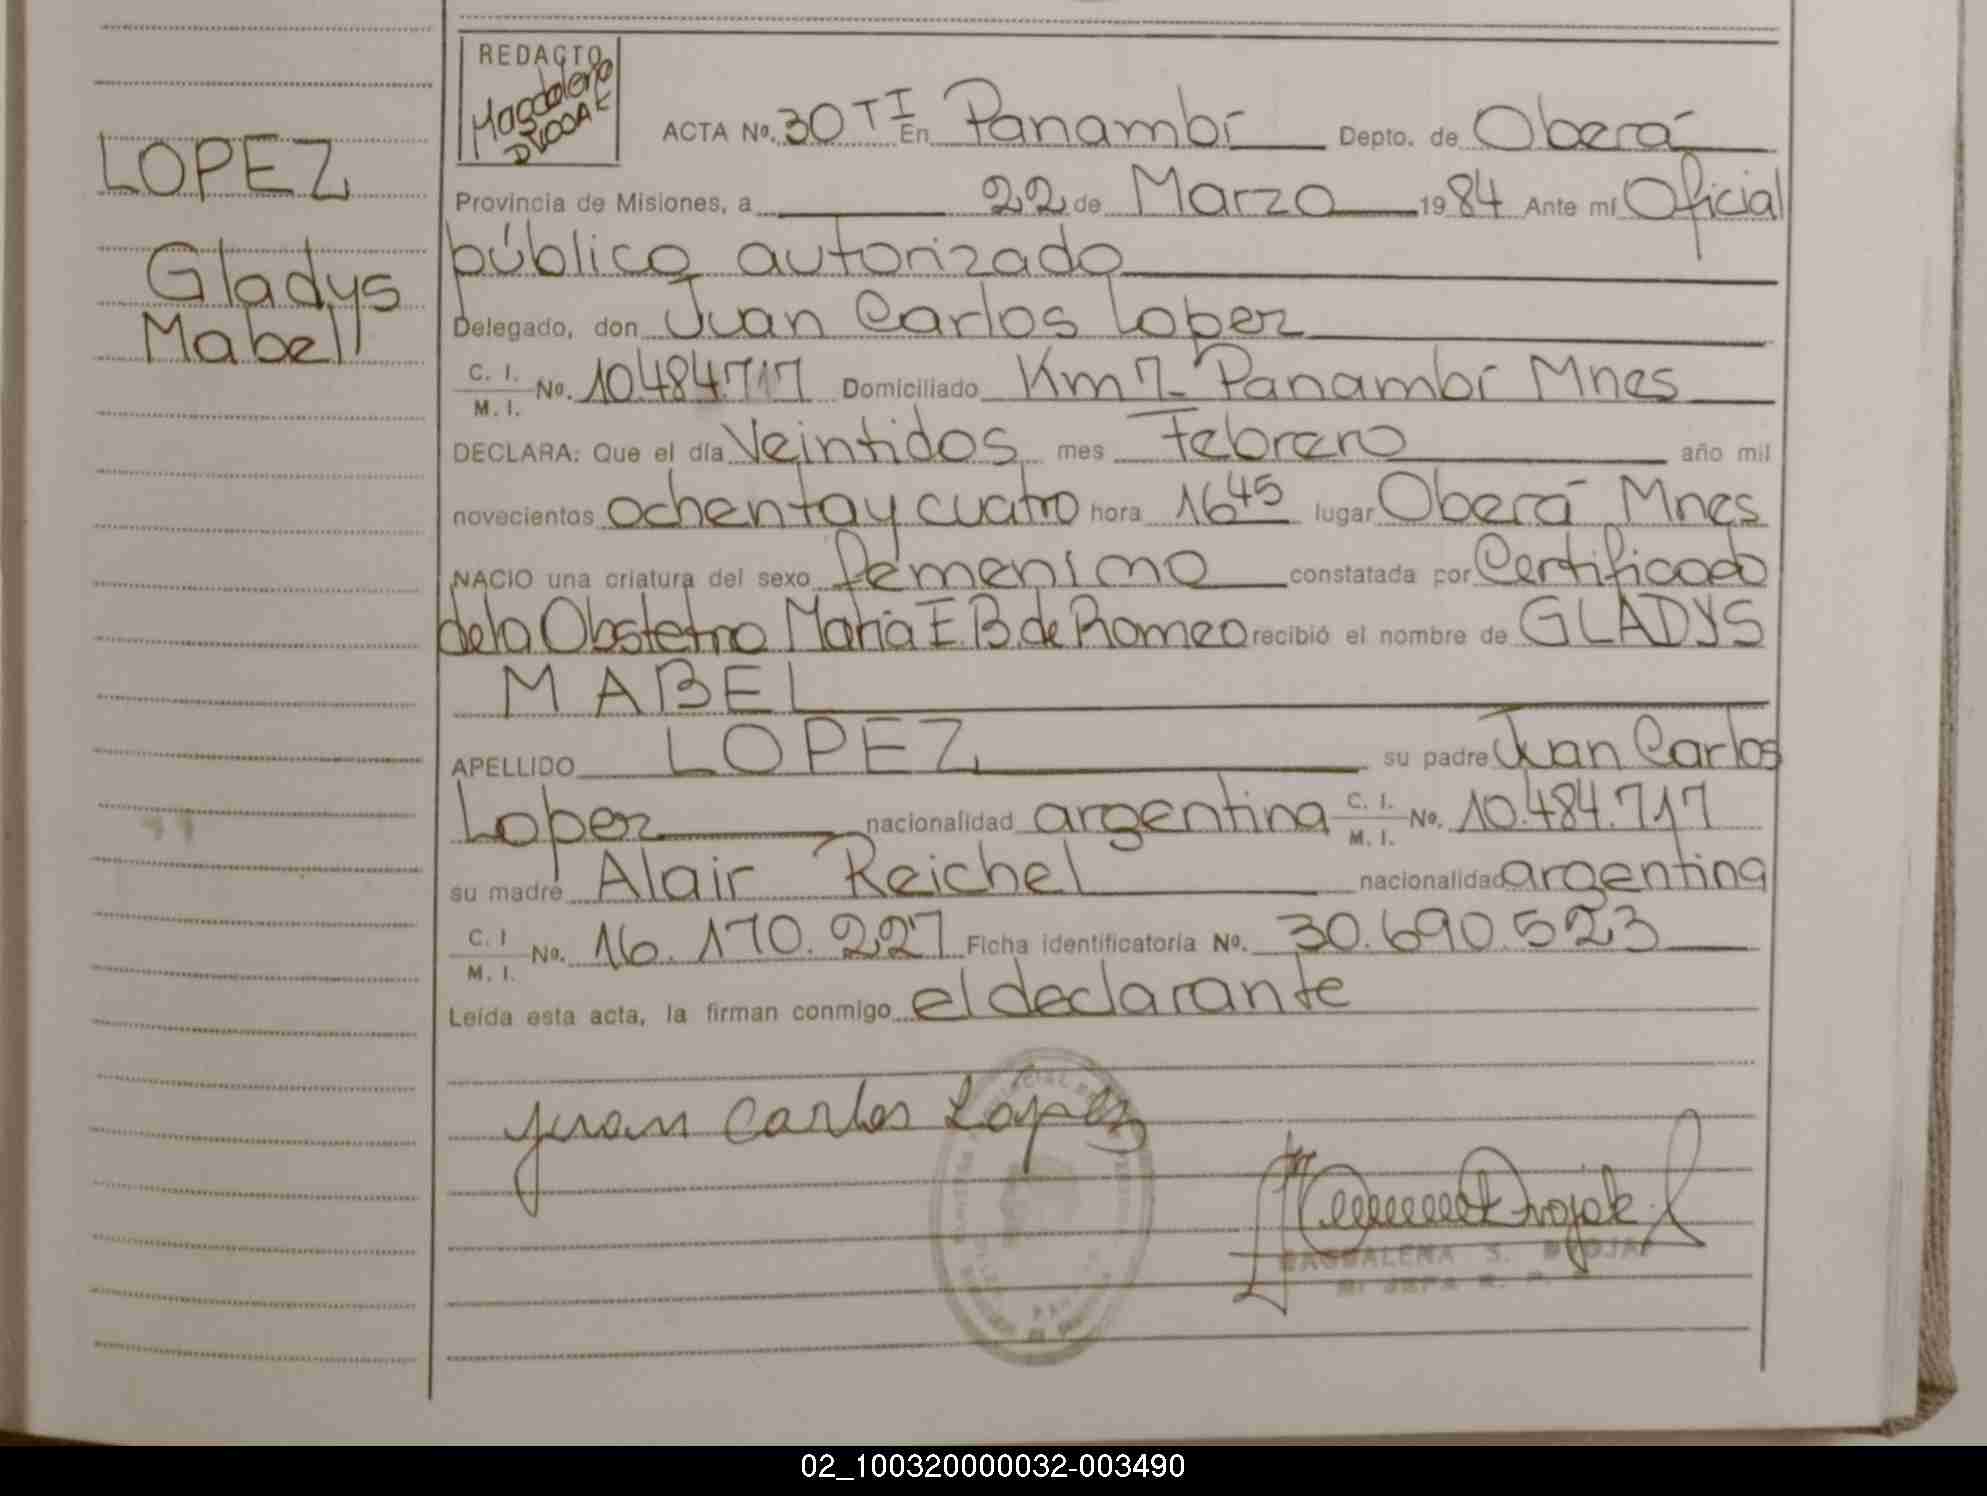 REDACTO
Magdalena
ACTA No. 30 TI En Panambí Depto. de Oberá
LOPEZ
Provincia de Misiones, a 22 de Marzo 1984 Ante mí Oficial
Gladys
público autorizado
Mabel
Delegado, don Juan Carlos Lopez
C. I. No. 10.484.717 Domiciliado Km 7 Panambí Mnes
M. I.
DECLARA: Que el día Veintidos mes Febrero año mil
novecientos ochenta y cuatro hora 16 45 lugar Oberá Mnes
NACIO una criatura del sexo femenino constatada por Certificado
de la Obstetra María E. B. de Romeo recibió el nombre de GLADYS
MABEL
APELLIDO LOPEZ su padre Juan Carlos
Lopez nacionalidad argentina C. I. No. 10.484.717
M. I.
su madre Alair Reichel nacionalidad argentina
C. I No. 16.170.227 Ficha identificatoria No. 30.690.523
M. I.
Leída esta acta, la firman conmigo el declarante
Juan Carlos Lopez
MAGDALENA S.
02_100320000032-003490